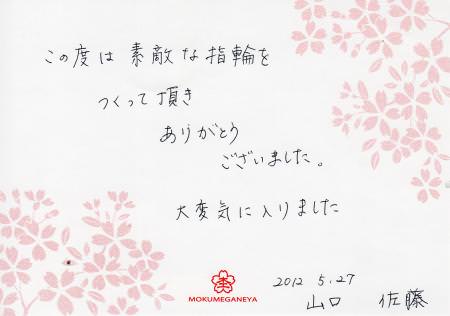 この度は素敵な指輪を
つくって頂き
ありがとう
ございました。
大変気に入りました
2012 5.27
山口 佐藤
MOKUMEGANEYA